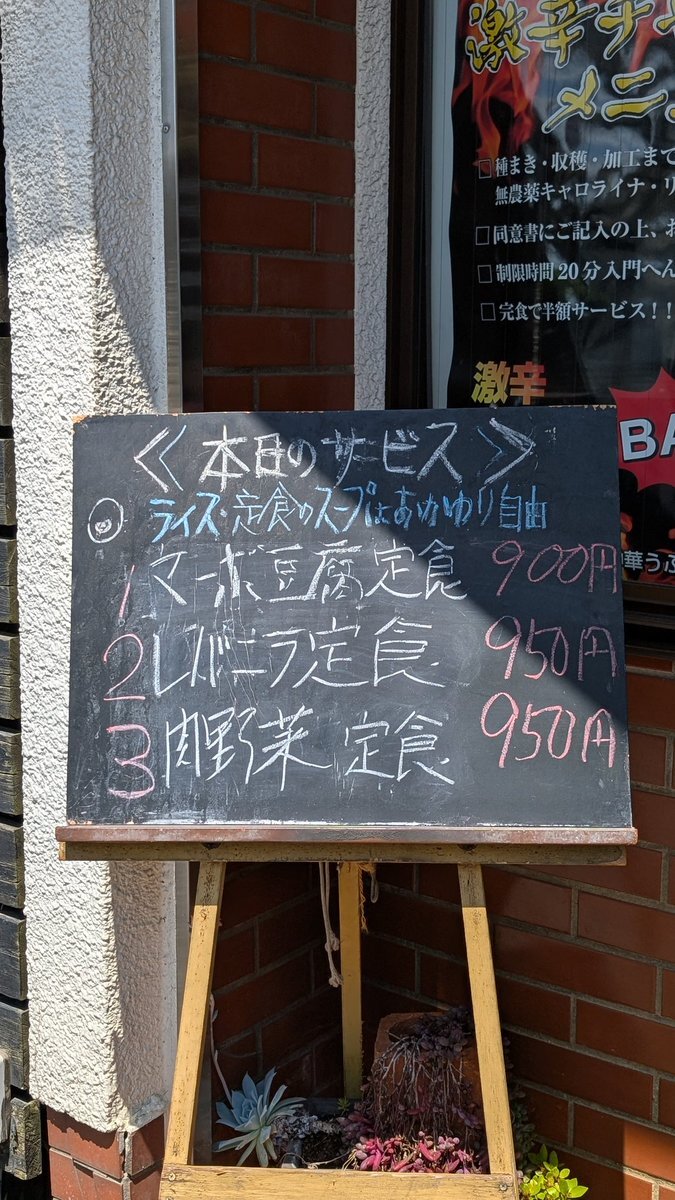 激辛チャ
メニュ
□種まき・収穫・加工まで
無農薬キャロライナ・リ
□同意書にご記入の上、お
□制限時間20分入門へん
□完食で半額サービス！！
激辛
BA
華うふ
≪本日のサービス≫
◎ライス・定食のスープはおかわり自由
1 マーボ豆腐定食 900円
2 レバニラ定食 950円
3 肉野菜定食 950円